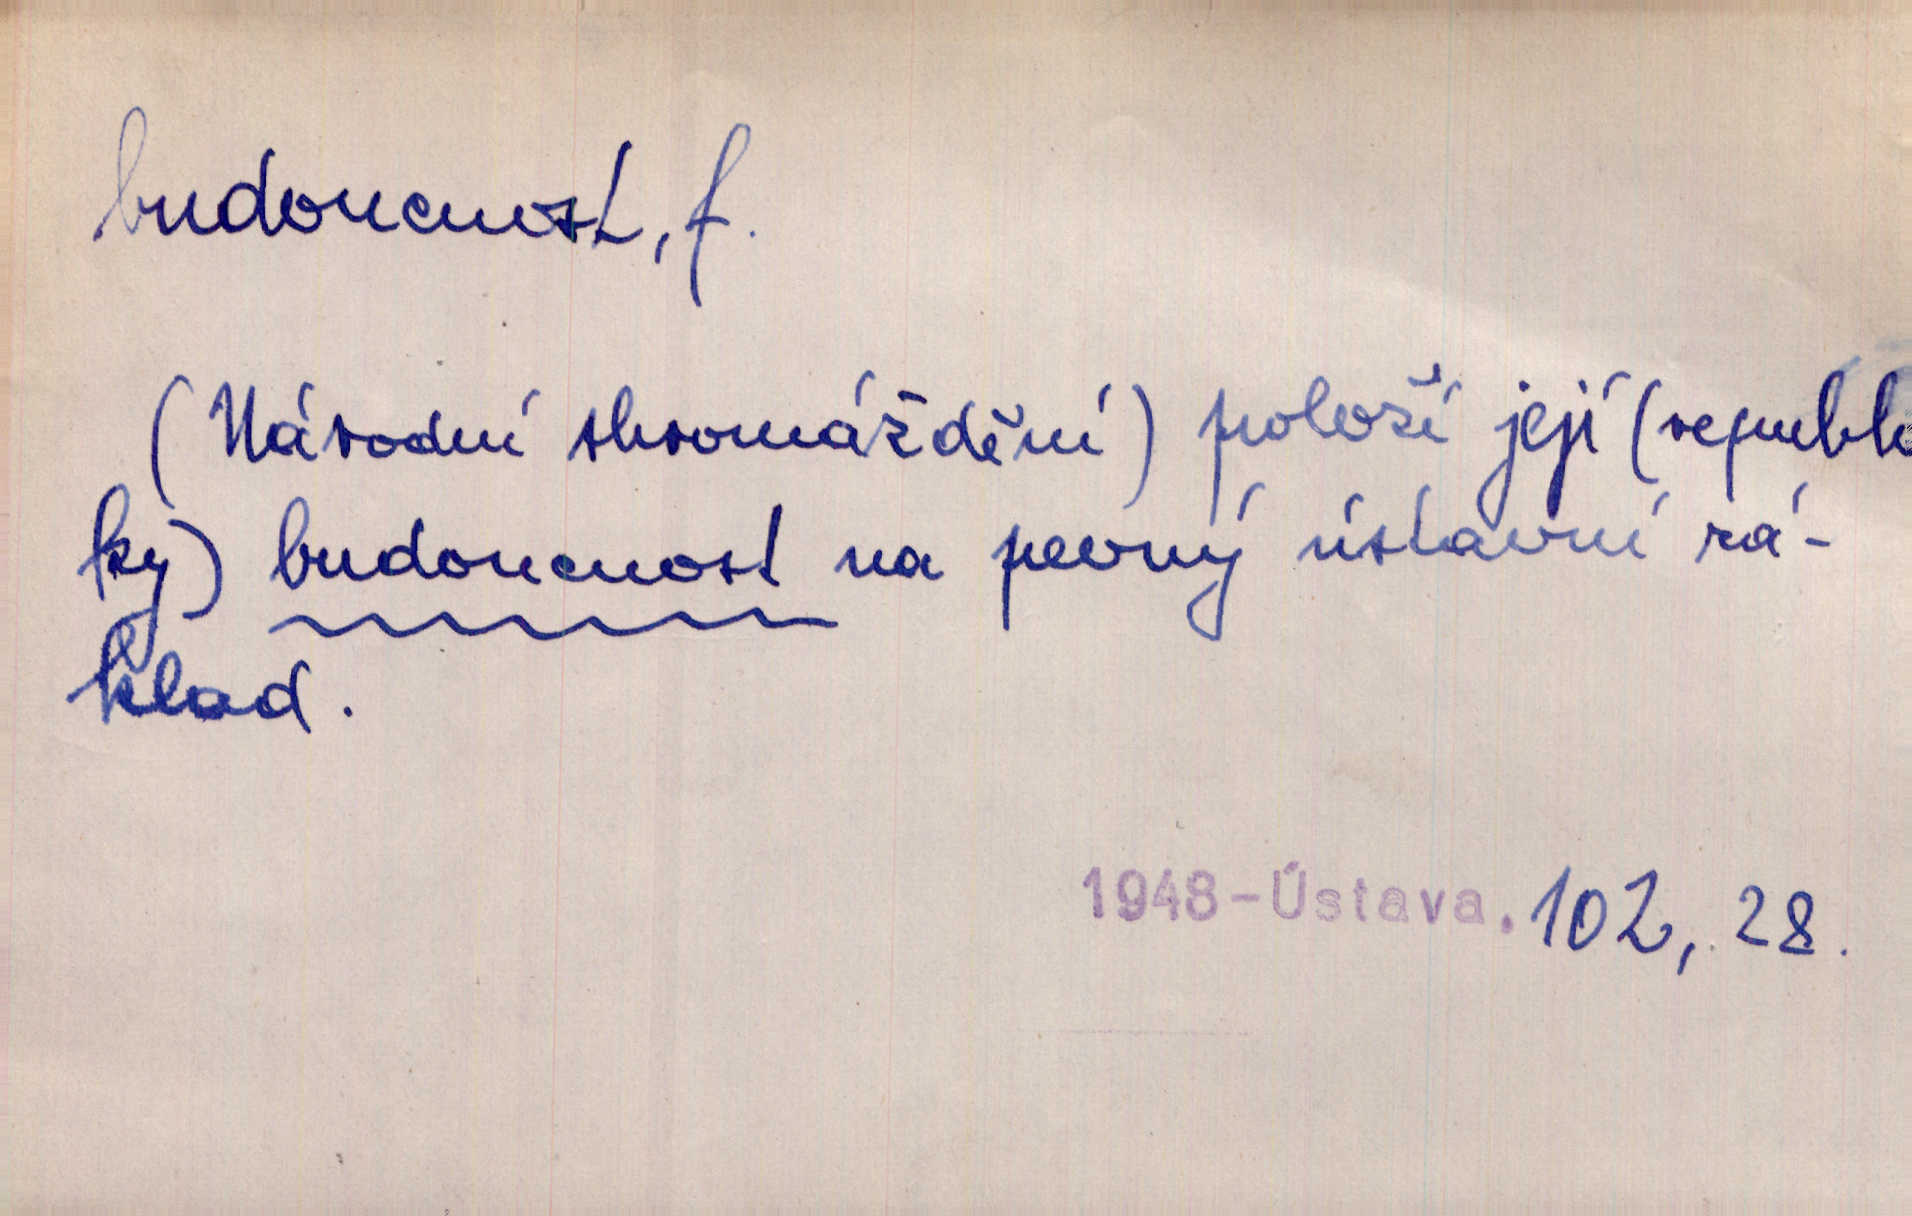 budoucnost, f.
(Národní shromáždění) položí její (republi
ky) budoucnost na pevný ústavní zá-
klad.
1948-Ústava. 102, 28.